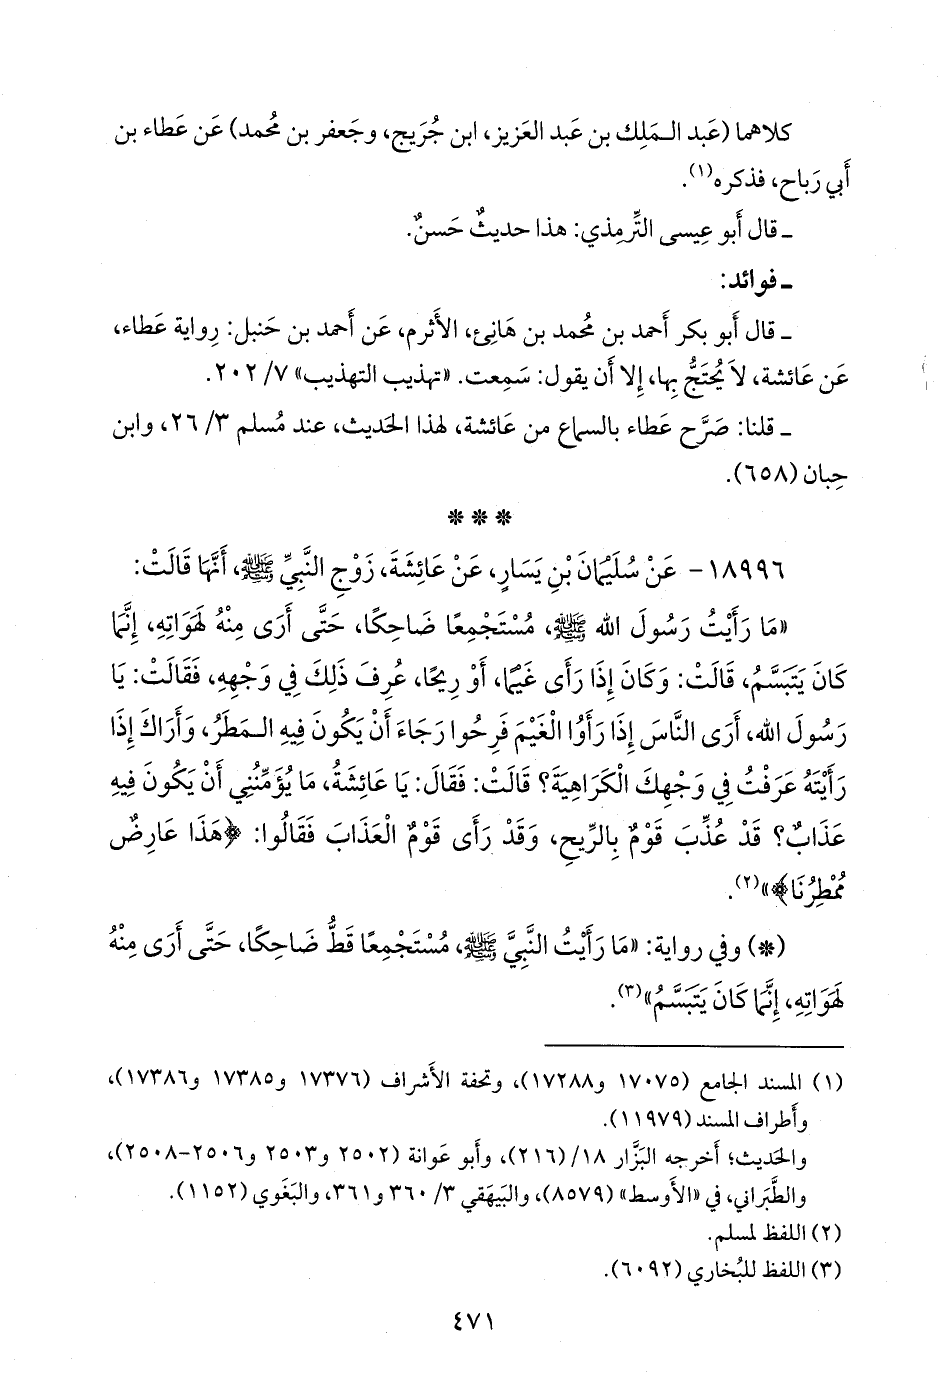 كلاهما (عَبد الـمَلِك بن عَبد العَزيز، ابن جُرَيج، وجَعفر بن مُحمد) عَن عَطاء بن
أَبي رَباح، فذكره(١).
ـ قال أَبو عِيسى التِّرمِذي: هذا حديثٌ حَسنٌ.
ـ فوائد:
ـ قال أَبو بكر أَحمد بن مُحمد بن هَانِئ، الأَثرم، عَن أَحمد بن حَنبل: رِواية عَطاء،
عَن عَائشة، لاَ يُحتَجُّ بِها، إِلا أَن يقول: سَمِعت. «تهذيب التهذيب» ٧/ ٢٠٢.
ـ قلنا: صَرَّح عَطاء بالسماع من عَائشة، لهذا الحَديث، عند مُسلم ٣/ ٢٦، وابن
حِبان (٦٥٨).
* * *
١٨٩٩٦- عَنْ سُلَيْمَانَ بْنِ يَسَارٍ، عَنْ عَائِشَةَ، زَوْجِ النَّبِيِّ ﷺ، أَنَّهَا قَالَتْ:
«مَا رَأَيْتُ رَسُولَ الله ﷺ، مُسْتَجْمِعًا ضَاحِكًا، حَتَّى أَرَى مِنْهُ لَهَوَاتِهِ، إِنَّمَا
كَانَ يَتَبَسَّمُ، قَالَتْ: وَكَانَ إِذَا رَأَى غَيْمًا، أَوْ رِيحًا، عُرِفَ ذَلِكَ فِي وَجْهِهِ، فَقَالَتْ: يَا
رَسُولَ الله، أَرَى النَّاسَ إِذَا رَأَوُا الْغَيْمَ فَرِحُوا رَجَاءَ أَنْ يَكُونَ فِيهِ الـمَطَرُ، وَأَرَاكَ إِذَا
رَأَيْتَهُ عَرَفْتُ فِي وَجْهِكَ الْكَرَاهِيَةَ؟ قَالَتْ: فَقَالَ: يَا عَائِشَةُ، مَا يُؤَمِّنُنِي أَنْ يَكُونَ فِيهِ
عَذَابٌ؟ قَدْ عُذِّبَ قَوْمٌ بِالرِّيحِ، وَقَدْ رَأَى قَوْمٌ الْعَذَابَ فَقَالُوا: ﴿هَذَا عَارِضٌ
مُمْطِرُنَا﴾»(٢).
(*) وفي رواية: «مَا رَأَيْتُ النَّبِيَّ ﷺ، مُسْتَجْمِعًا قَطُّ ضَاحِكًا، حَتَّى أَرَى مِنْهُ
لَهَوَاتِهِ، إِنَّمَا كَانَ يَتَبَسَّمُ»(٣).
(١) المسند الجامع (١٧٠٧٥ و١٧٢٨٨)، وتحفة الأَشراف (١٧٣٧٦ و١٧٣٨٥ و١٧٣٨٦)،
وأَطراف المسند (١١٩٧٩).
والحَديث؛ أَخرجه البَزَّار ١٨/ (٢١٦)، وأَبو عَوانة (٢٥٠٢ و٢٥٠٣ و٢٥٠٦-٢٥٠٨)،
والطَّبَراني، في «الأَوسط» (٨٥٧٩)، والبَيهَقي ٣/ ٣٦٠ و٣٦١، والبَغَوي (١١٥٢).
(٢) اللفظ لمسلم.
(٣) اللفظ للبُخاري (٦٠٩٢).
٤٧١